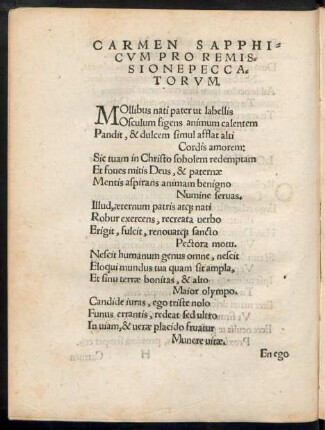 CARMEN SAPPHI-
CVM PRO REMIS-
SIONE PECCA-
TORVM.
MOllibus nati pater ut labellis
Osculum figens animum calentem
Pandit, & dulcem simul afflat alti
Cordis amorem:
Sic tuam in Christo sobolem redemptam
Et foues mitis Deus, & paternæ
Mentis aspirans animam benigno
Numine seruas.
Illud, æternum patris atq; nati
Robur exercens, recreata uerbo
Erigit, fulcit, renouatq; sancto
Pectora motu.
Nescit humanum genus omne, nescit
Eloqui mundus tua quam sit ampla,
Et sinu terræ bonitas, & alto
Maior olympo.
Candide iuras, ego triste nolo
Funus errantis, redeat sed ultro
In uiam, & ueræ placido fruatur
Munere uitæ.
H
En ego